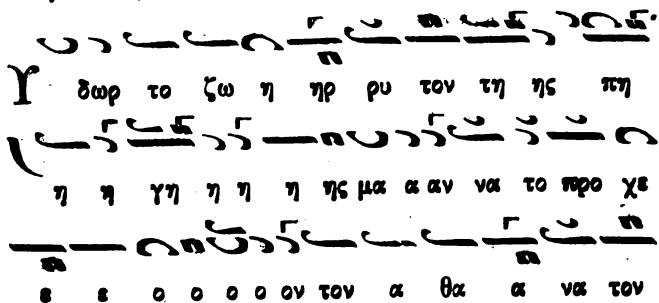 Υ δωρ το ζω η ηρ ρυ τον τη ης πη
η η γη η η η ης μα α αν να το προ χε
ε ε ο ο ο ο ον τον α θα α να τον